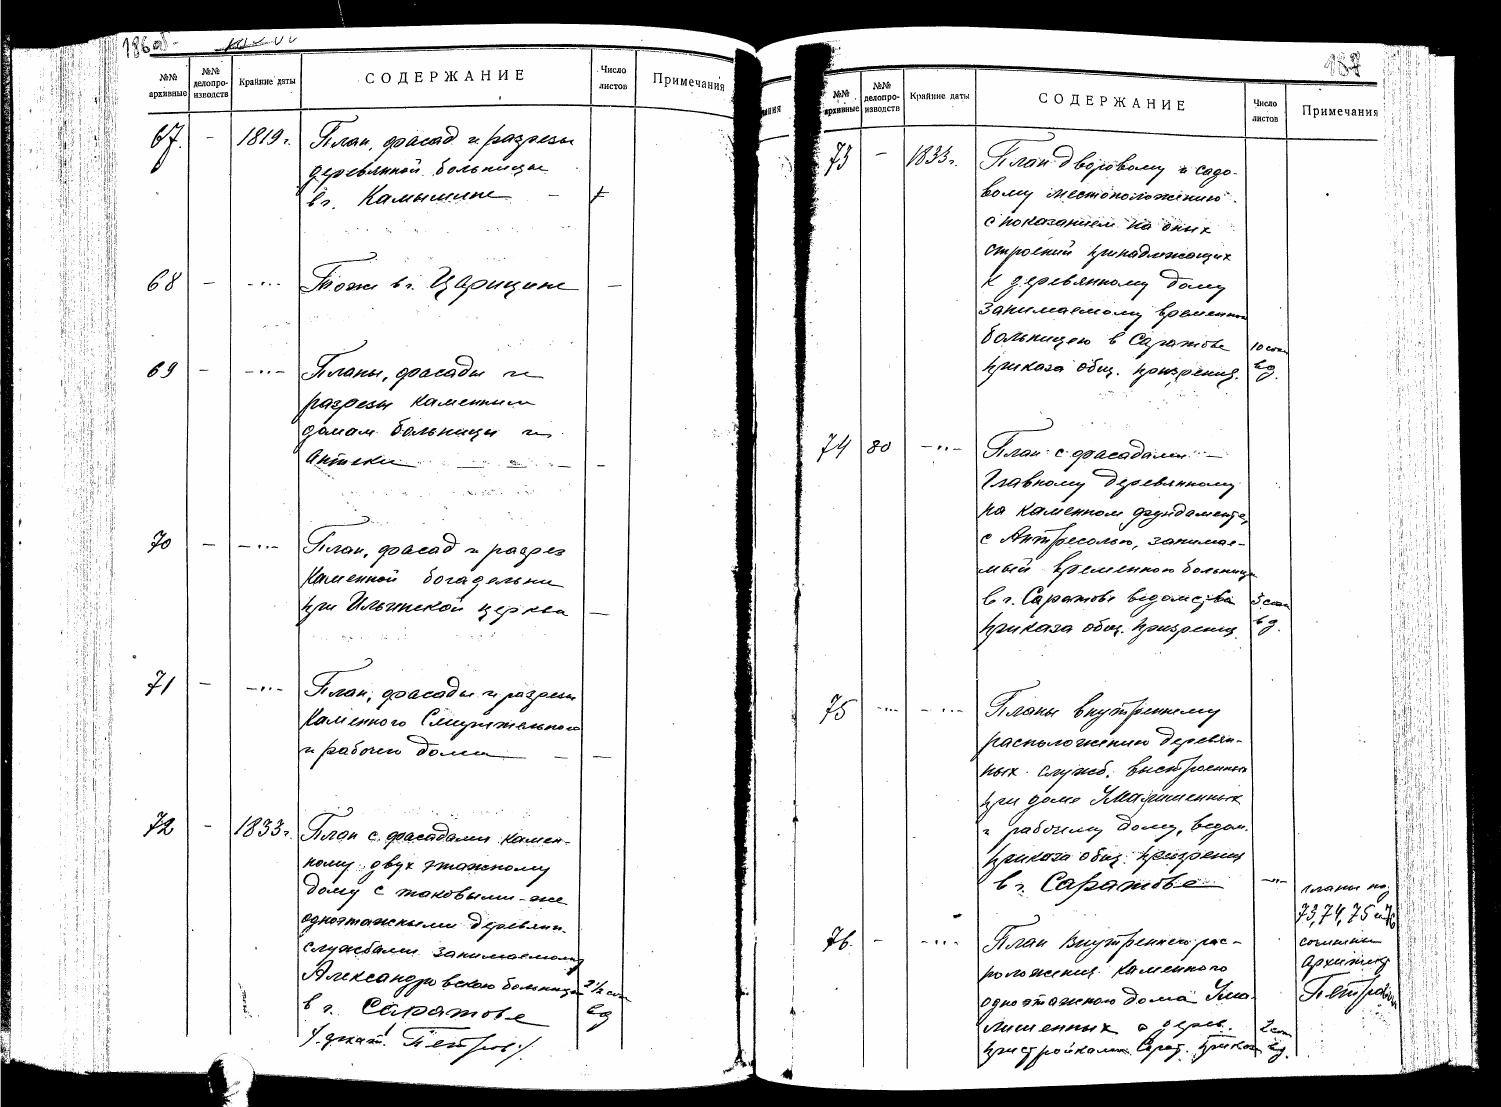 186об.
№№ архивные
№№ делопро-изводств
Крайние даты
СОДЕРЖАНИЕ
Число листов
Примечания
67. - 1819 г. План, фасад и разрезы
деревянной больницы
в г. Камышине -
68 - -"- Тоже в г. Царицине -
69 - -"- Планы, фасады и
разрезы каменным
домам больницы и
Аптеки - - - -
70 - -"- План, фасад и разрез
каменной богадельни
при Ильинской церкви -
71 - -"- План, фасады и разрезы
каменного Смирительного
и рабочего дома - -
72 - 1833 г. План с фасадами камен-
ному двух этажному
дому с таковыми-же
одноэтажными деревян.
службами занимаемому
Александровскою больницею 2 ½ саж
в г. Саратове в д
Петров
187
№№ архивные
№№ делопро-изводств
Крайние даты
СОДЕРЖАНИЕ
Число листов
Примечания
73 - 1833 г. План дворовому и садо-
вому местоположению
с показанием на оных
строений принадлежащих
к деревянному дому
занимаемому временною
больницею в Саратове 10 саж
приказа общ. призрения. в д.
74 80 -"- План с фасадами -
Главному деревянному
на каменном фундаменте,
с Антресолью, занимае-
мый временною больницею
в г. Саратове ведомства 5 саж
приказа общ. призрения в д.
75 -"- -"- Планы внутреннему
расположению деревян-
ных служб, выстроенных
при доме Умалишенных
и рабочему дому, ведом.
приказа общ. призрения
в г. Саратове -"-
планы под
73, 74, 75 и 76
сочинены
Архитект
Петровым
76. - -"- План внутреннего рас-
положения каменного
одноэтажного дома Ума-
лишенных с дерев. 2 саж
пристройками Сарат. приказа в д.